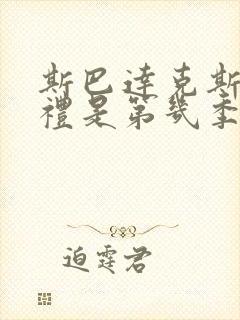 斯巴達克斯
禮是第幾季
迫霆君